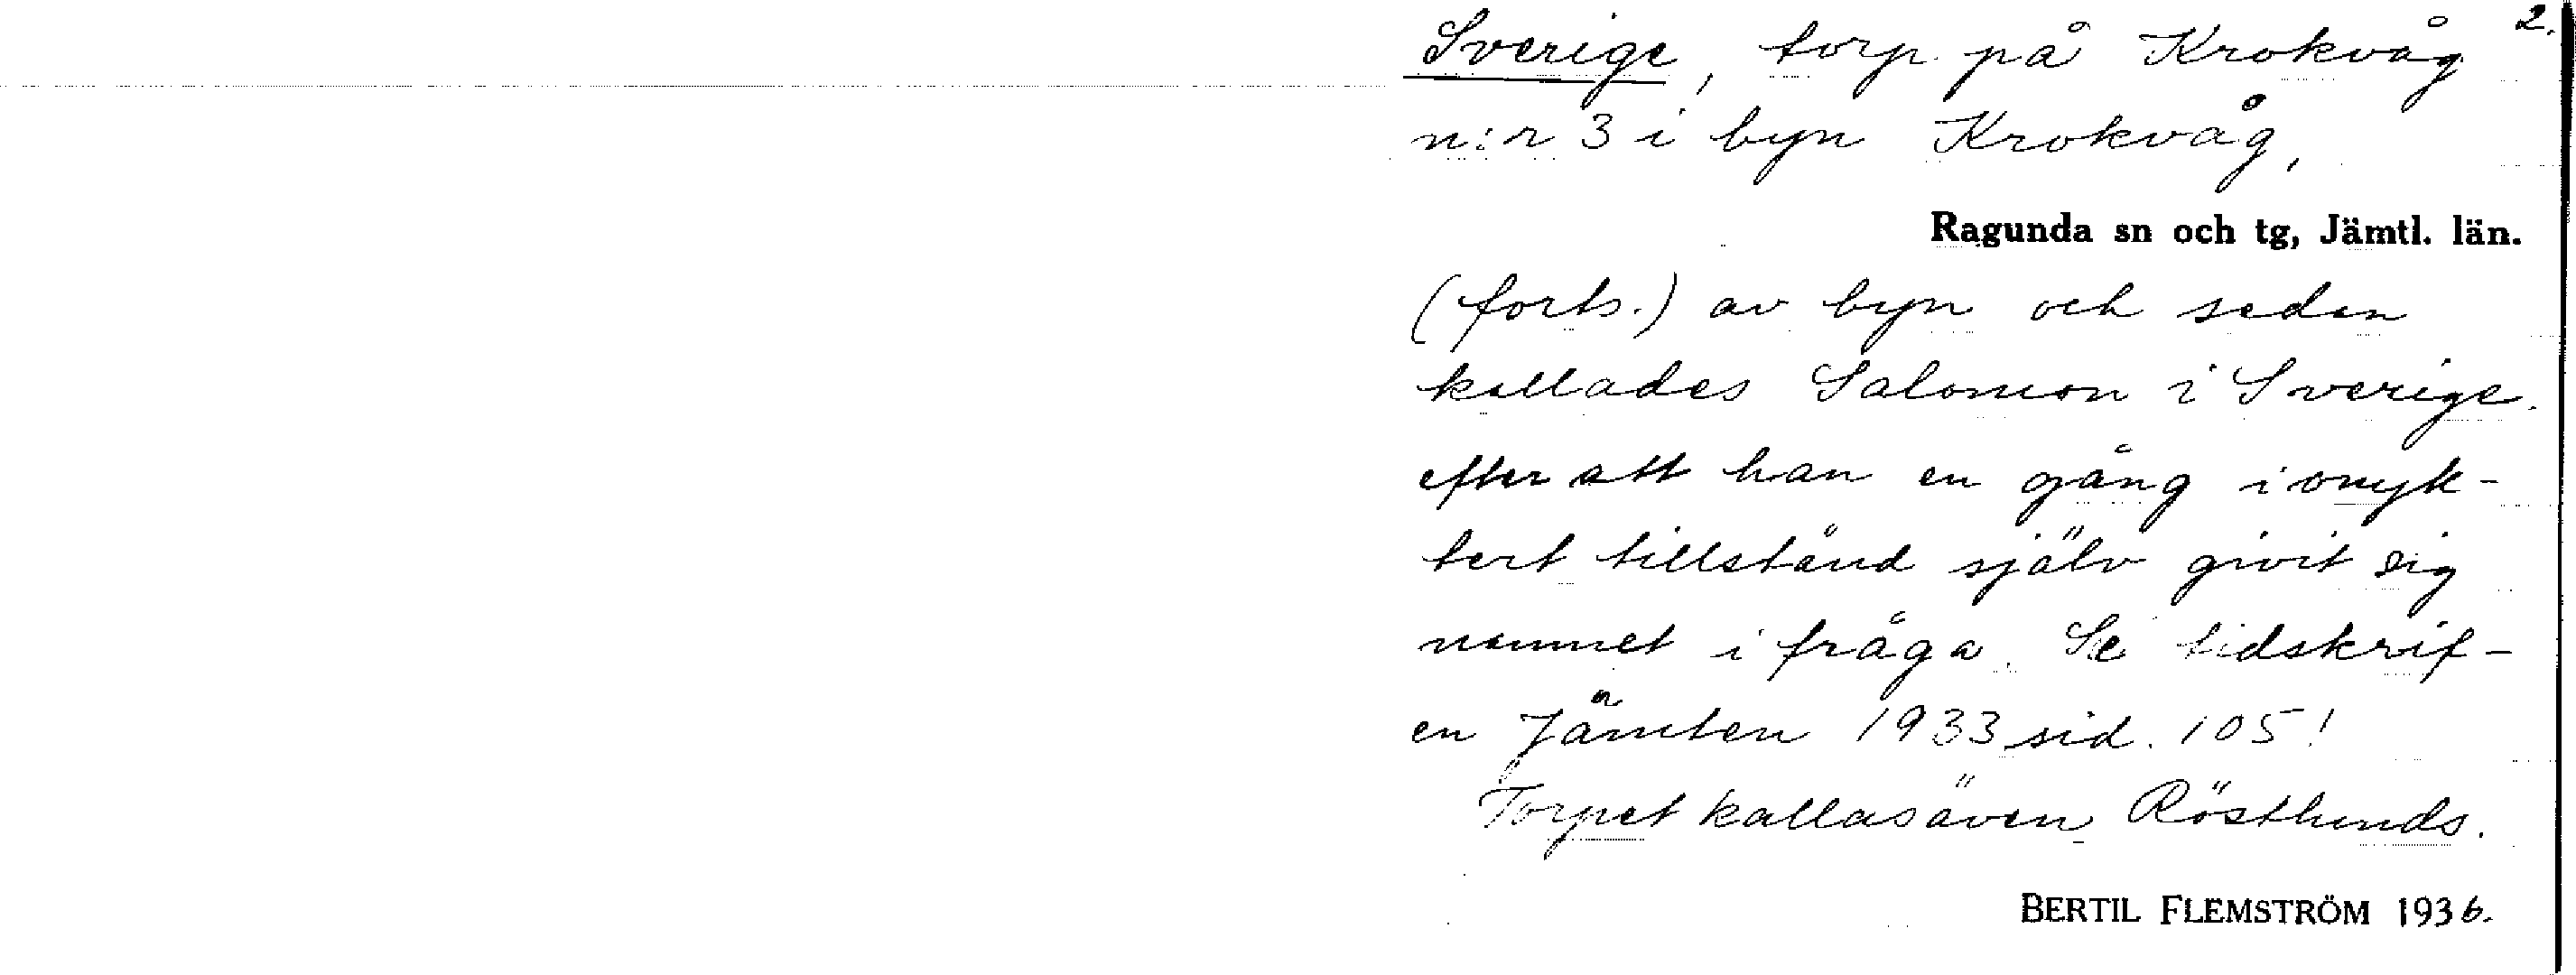 2.
Sverige, torp på Krokvåg
n:r 3 i byn Krokvåg,
Ragunda sn och tg, Jämtl. län.
(forts.) av byn och sedan
kallades Salomon i Sverige.
efter att han en gång i onyk-
tert tillstånd själv givit sig
namnet i fråga. Se tidskrif-
en Jämten 1933 sid. 105!
Torpet kallas även Röstlunds.
BERTIL FLEMSTRÖM 1936.